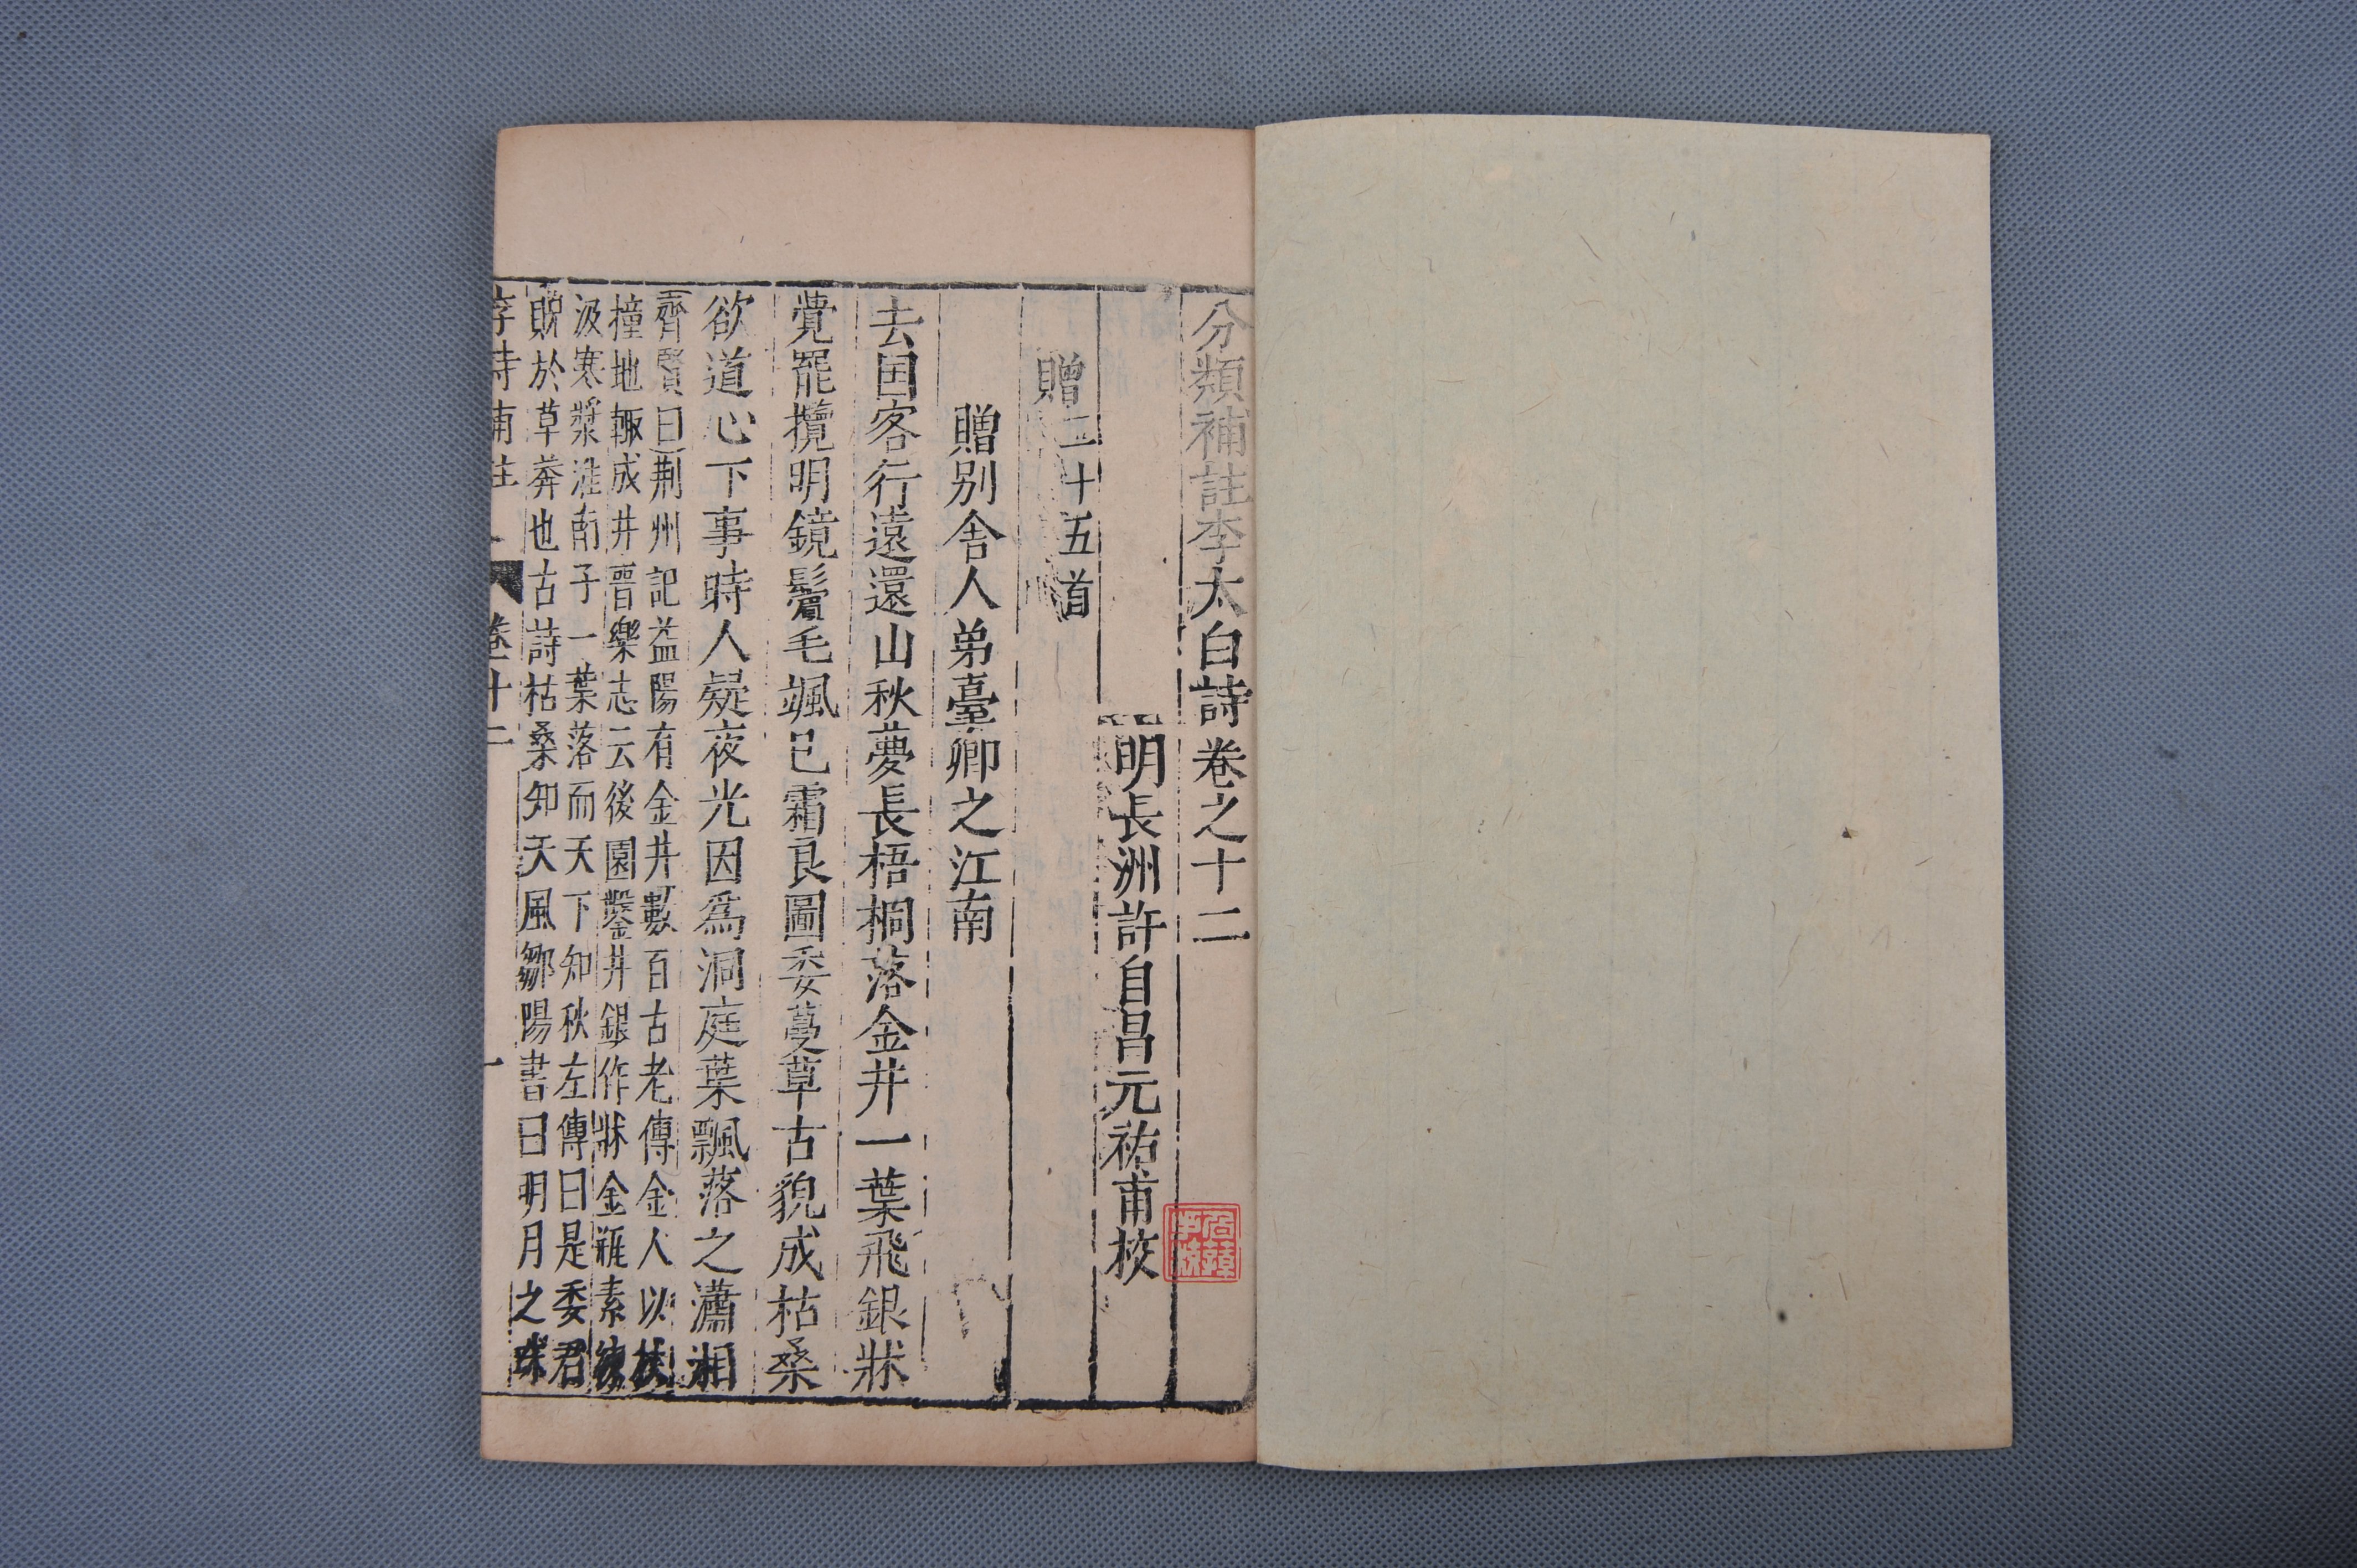 分類補註李太白詩卷之十二
明長洲許自昌元祐甫校
贈二十五首
贈别舍人弟臺卿之江南
去国客行遠還山秋夢長梧桐落金井一葉飛銀牀
覺罷攬明鏡鬢毛颯已霜良圖委蔓草古貌成枯桑
欲道心下事時人疑夜光因爲洞庭葉飄落之瀟湘
齊賢曰荆州記益陽有金井數百古老傳金人以杖
撞地輙成井晉樂志云後園鑿井銀作牀金瓶素綆
汲寒漿淮南子一葉落而天下知秋左傳曰是委君
貺於草莽也古詩枯桑知天風鄒陽書曰明月之珠
李詩補註
卷十二
一